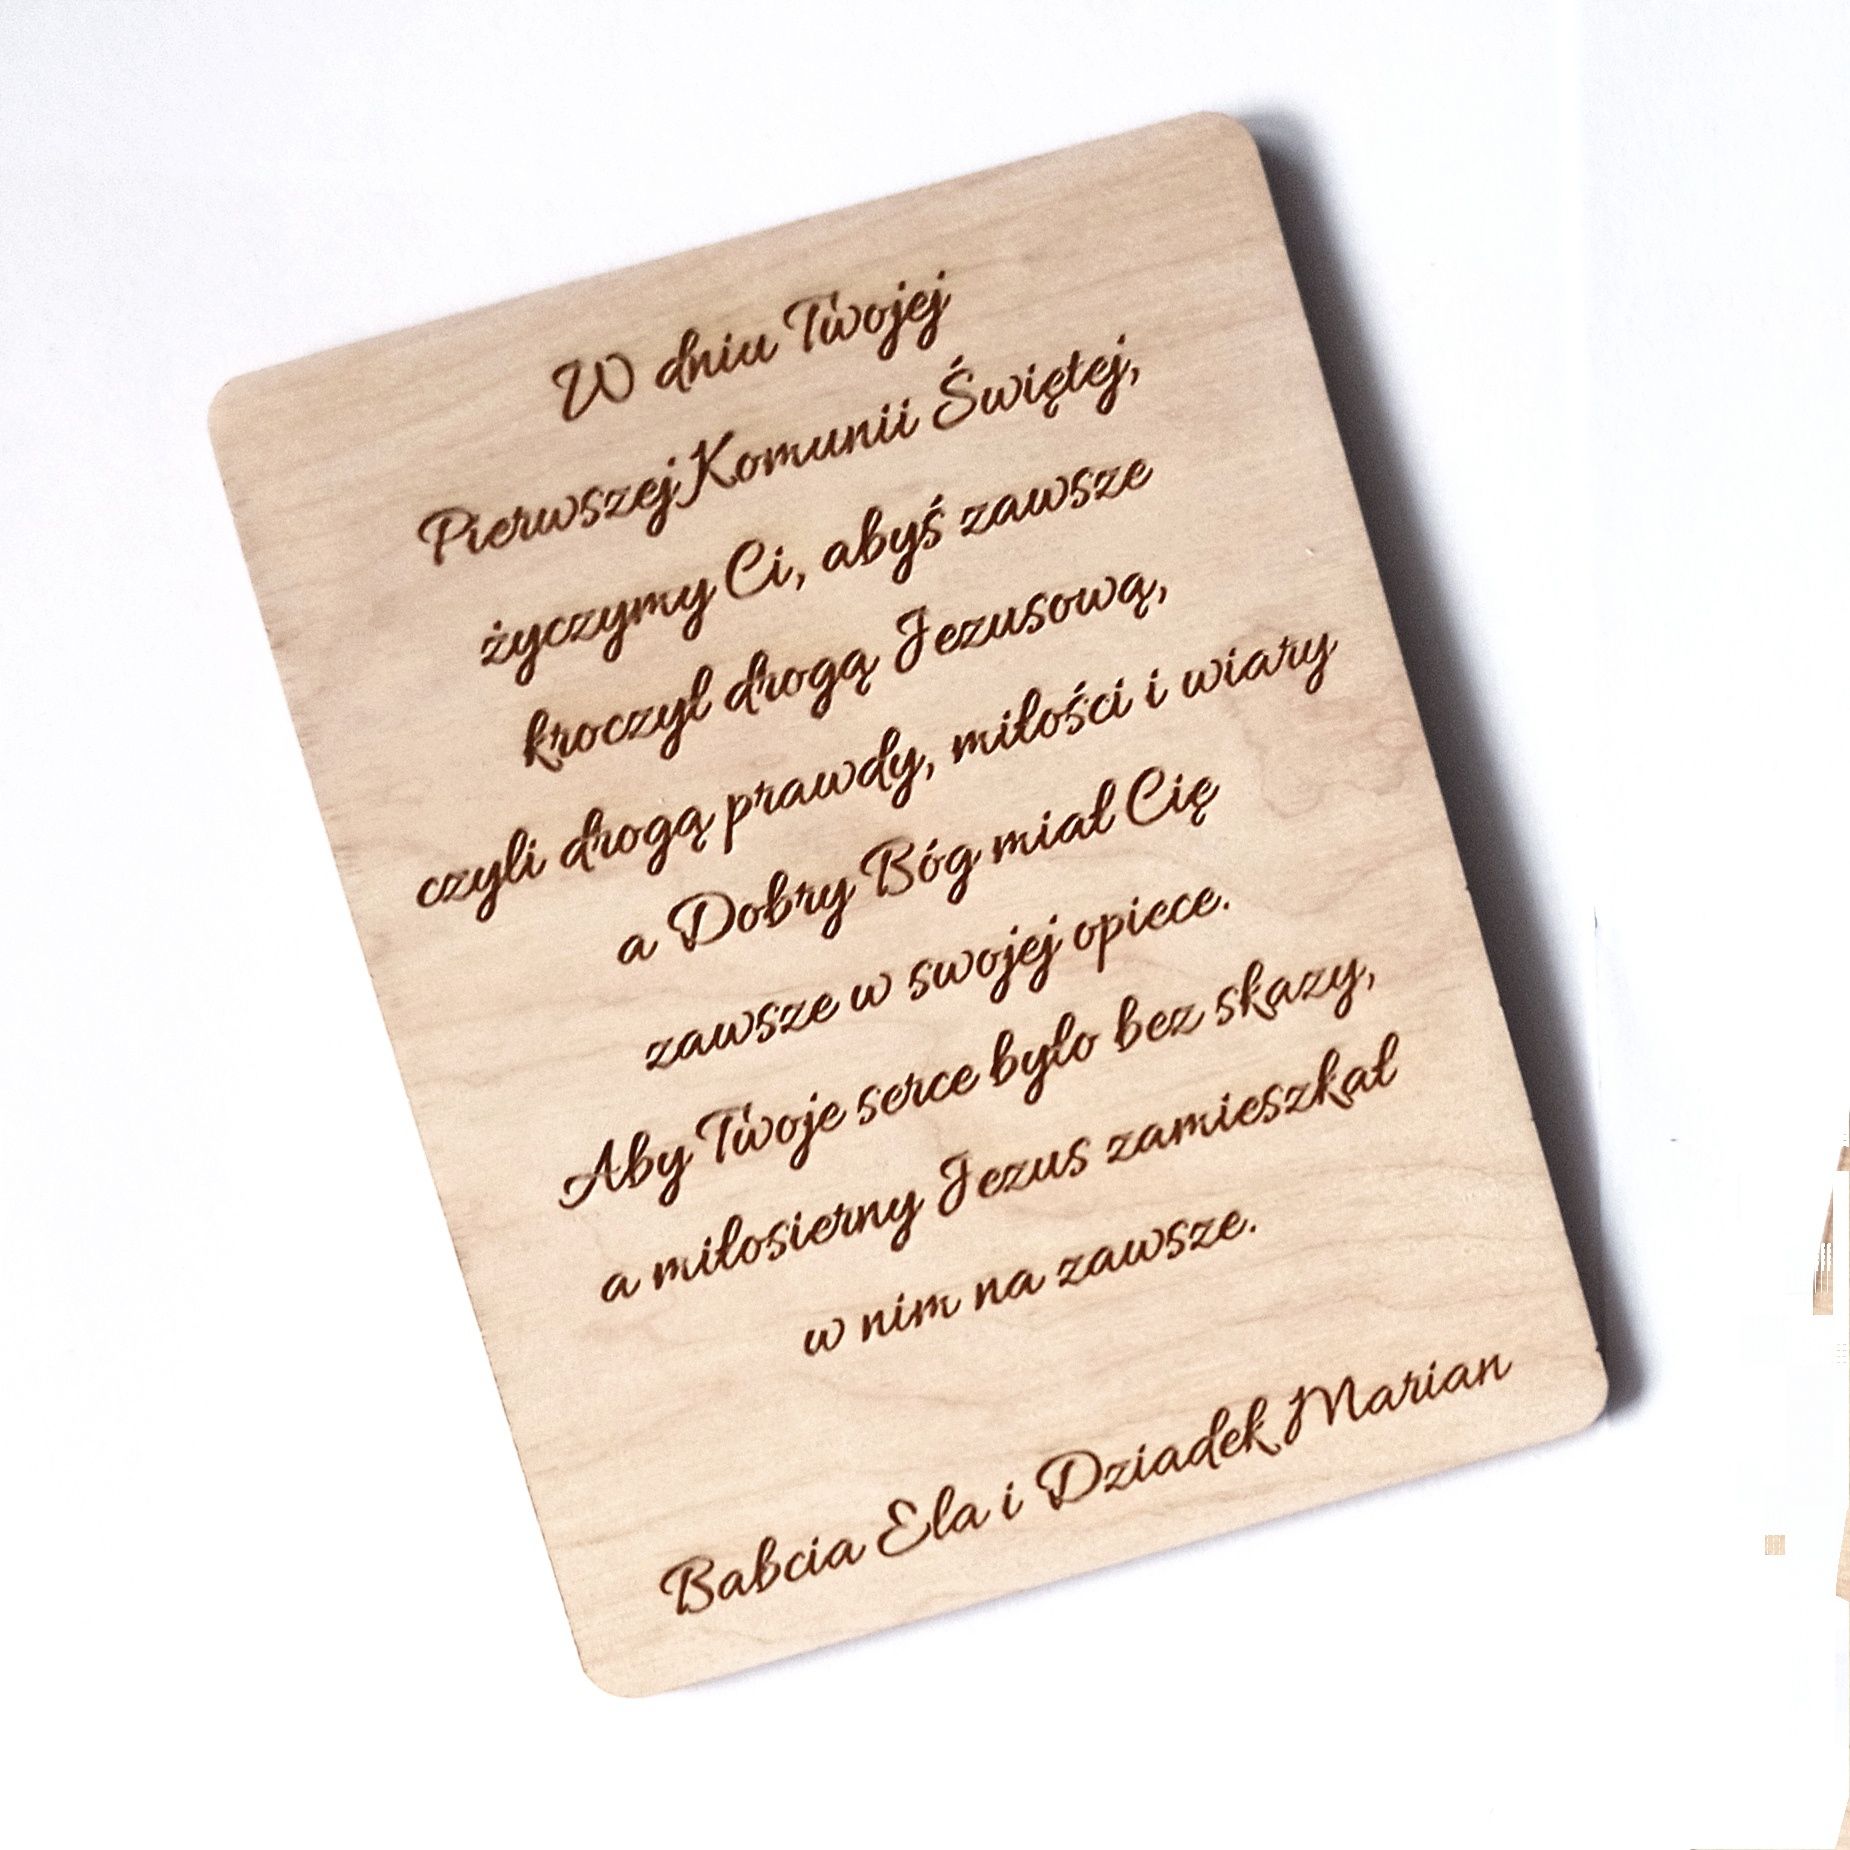 W dniu Twojej
Pierwszej Komunii Świętej,
życzymy Ci, abyś zawsze
kroczył drogą Jezusową,
czyli drogą prawdy, miłości i wiary
a Dobry Bóg miał Cię
zawsze w swojej opiece.
Aby Twoje serce było bez skazy,
a miłosierny Jezus zamieszkał
w nim na zawsze.
Babcia Ela i Dziadek Marian